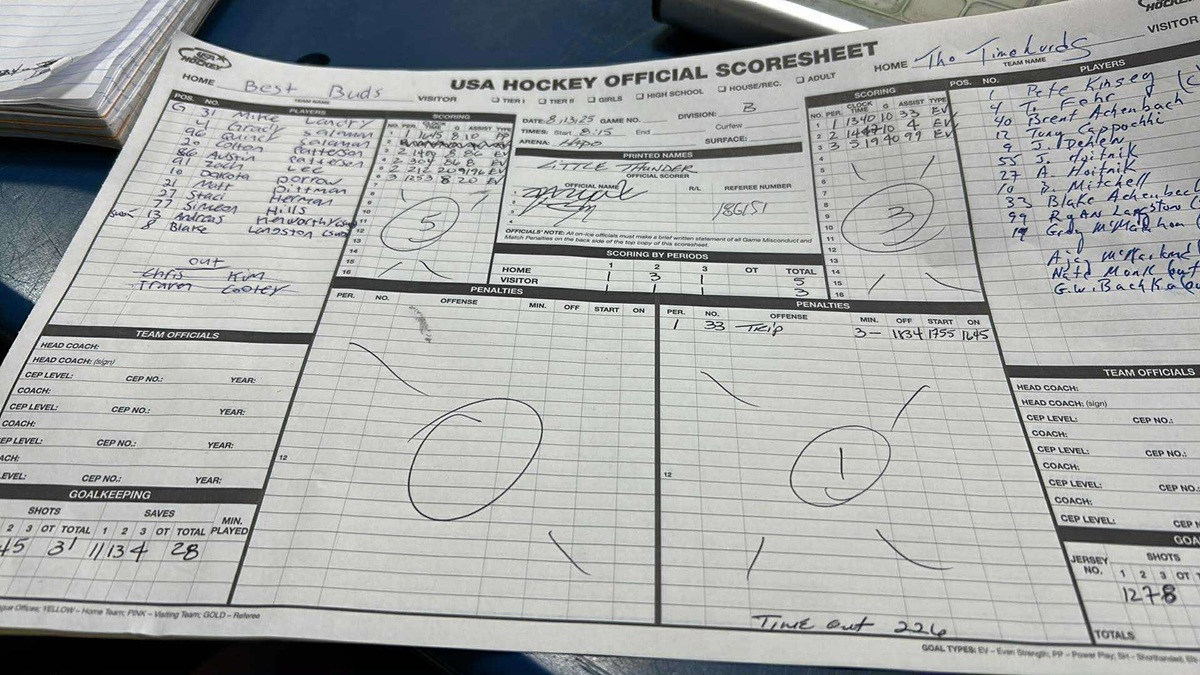 USA HOCKEY
USA HOCKEY OFFICIAL SCORESHEET
HOCKEY
HOME Best Buds
TEAM NAME
VISITOR
TIER I TIER II GIRLS HIGH SCHOOL HOUSE/REC. ADULT
HOME The Timohurds
TEAM NAME
VISITOR
POS. NO. PLAYERS
G 31 Mike Landry
Grady Salaman
96 Quincy Salaman
20 Colton Patterson
86 Austin Patterson
91 Zach Lee
10 Dakota Porrow
21 Matt Pittman
27 Staci Herman
77 Simeon Hills
13 Andreas
8 Blake Langston (sub)
out
Chris Kim
SCORING
NO. PER. CLOCK TIME G ASSIST TYPE
1 1 1645 8 10 PP
4 2 304 86 8 EV
5 2 212 20 9196 EV
3 1253 8 20 EV
7
8
9
10
11
12
13
14
15
16
5
DATE: 8/13/25 GAME NO. DIVISION: B
TIMES: Start 8:15 End Curfew
ARENA: HAPO SURFACE:
PRINTED NAMES
LITTLE THUNDER
OFFICIAL SCORER
OFFICIAL NAME R/L REFEREE NUMBER
OFFICIALS' NOTE: All on-ice officials must make a brief written statement of all Game Misconduct and
Match Penalties on the back side of the top copy of this scoresheet.
SCORING BY PERIODS
1 2 3 OT TOTAL
HOME 1 3 1 5
VISITOR 1 1 1 3
SCORING
NO. PER. CLOCK TIME G ASSIST TYPE
1 1 1340 10 33 EV
2 2 1447 10 4 EV
3 3 519 40 99 EV
4
5
6
7
8
9
10
11
12
13
14
15
16
3
POS. NO. PLAYERS
1 Pete Kinsey (C)
4 T. Fehr
40 Brent Achenbach
12 Tony Cappochhi
9 J. Dehlen
55 J. Hoitnik
27 A. Hoitnik
10 D. Mitchell
33 Blake Achenbach
99 Ryan Langston
19 Grady McMahon
Nate Monk out
G.W. Bachka out
PENALTIES
PER. NO. OFFENSE MIN. OFF START ON
12
PENALTIES
PER. NO. OFFENSE MIN. OFF START ON
1 33 Trip 3- 1834 1755 1645
12
1
Time out 226
TEAM OFFICIALS
HEAD COACH:
HEAD COACH: (sign)
CEP LEVEL: CEP NO.: YEAR:
COACH:
CEP LEVEL: CEP NO.: YEAR:
COACH:
EP LEVEL: CEP NO.: YEAR:
ACH:
EVEL: CEP NO.: YEAR:
GOALKEEPING
SHOTS SAVES MIN. PLAYED
2 3 OT TOTAL 1 2 3 OT TOTAL
45 31 11 13 4 28
TEAM OFFICIALS
HEAD COACH:
HEAD COACH: (sign)
CEP LEVEL: CEP NO.:
COACH:
CEP LEVEL: CEP NO.:
COACH:
CEP LEVEL: CEP NO.:
COACH:
CEP LEVEL: CEP N
GOA
JERSEY NO. SHOTS
1 2 3 OT
12 7 8
TOTALS
gue Offices; YELLOW – Home Team; PINK – Visiting Team; GOLD – Referee
GOAL TYPES: EV – Even Strength; PP – Power Play; SH – Shorthanded; EN